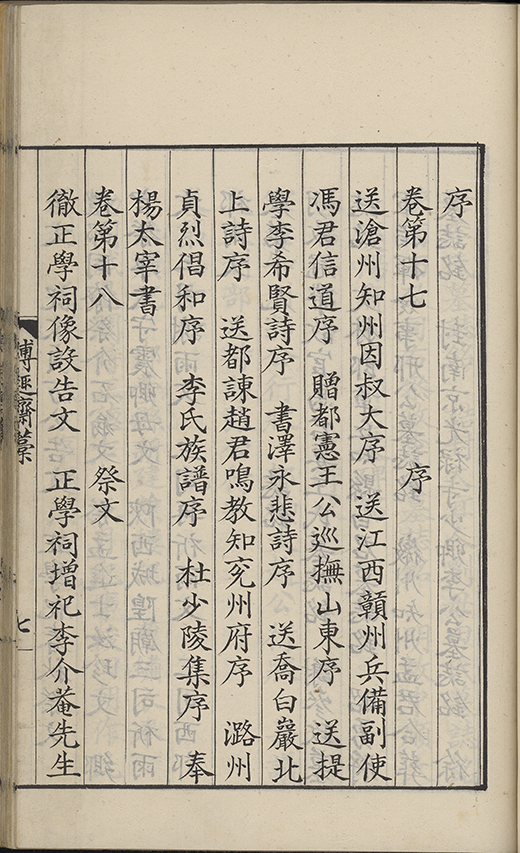 序
卷第十七　序
送滄州知州因叔大序　送江西贛州兵備副使
馮君信道序　贈都憲王公巡撫山東序　送提
學李希賢詩序　書澤永悲詩序　送喬白巖北
上詩序　送都諫趙君鳴教知兖州府序　潞州
貞烈倡和序　李氏族譜序　杜少陵集序　奉
楊太宰書
卷第十八　祭文
徹正學祠像設告文　正學祠增祀李介菴先生
博趣齋藁　七